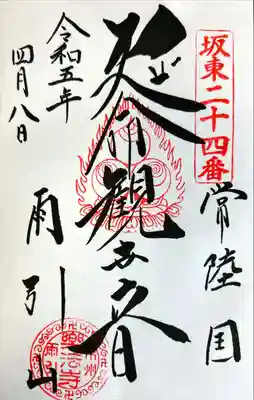 坂東二十四番
常陸国
延命観世音
令和五年
四月八日
雨引山